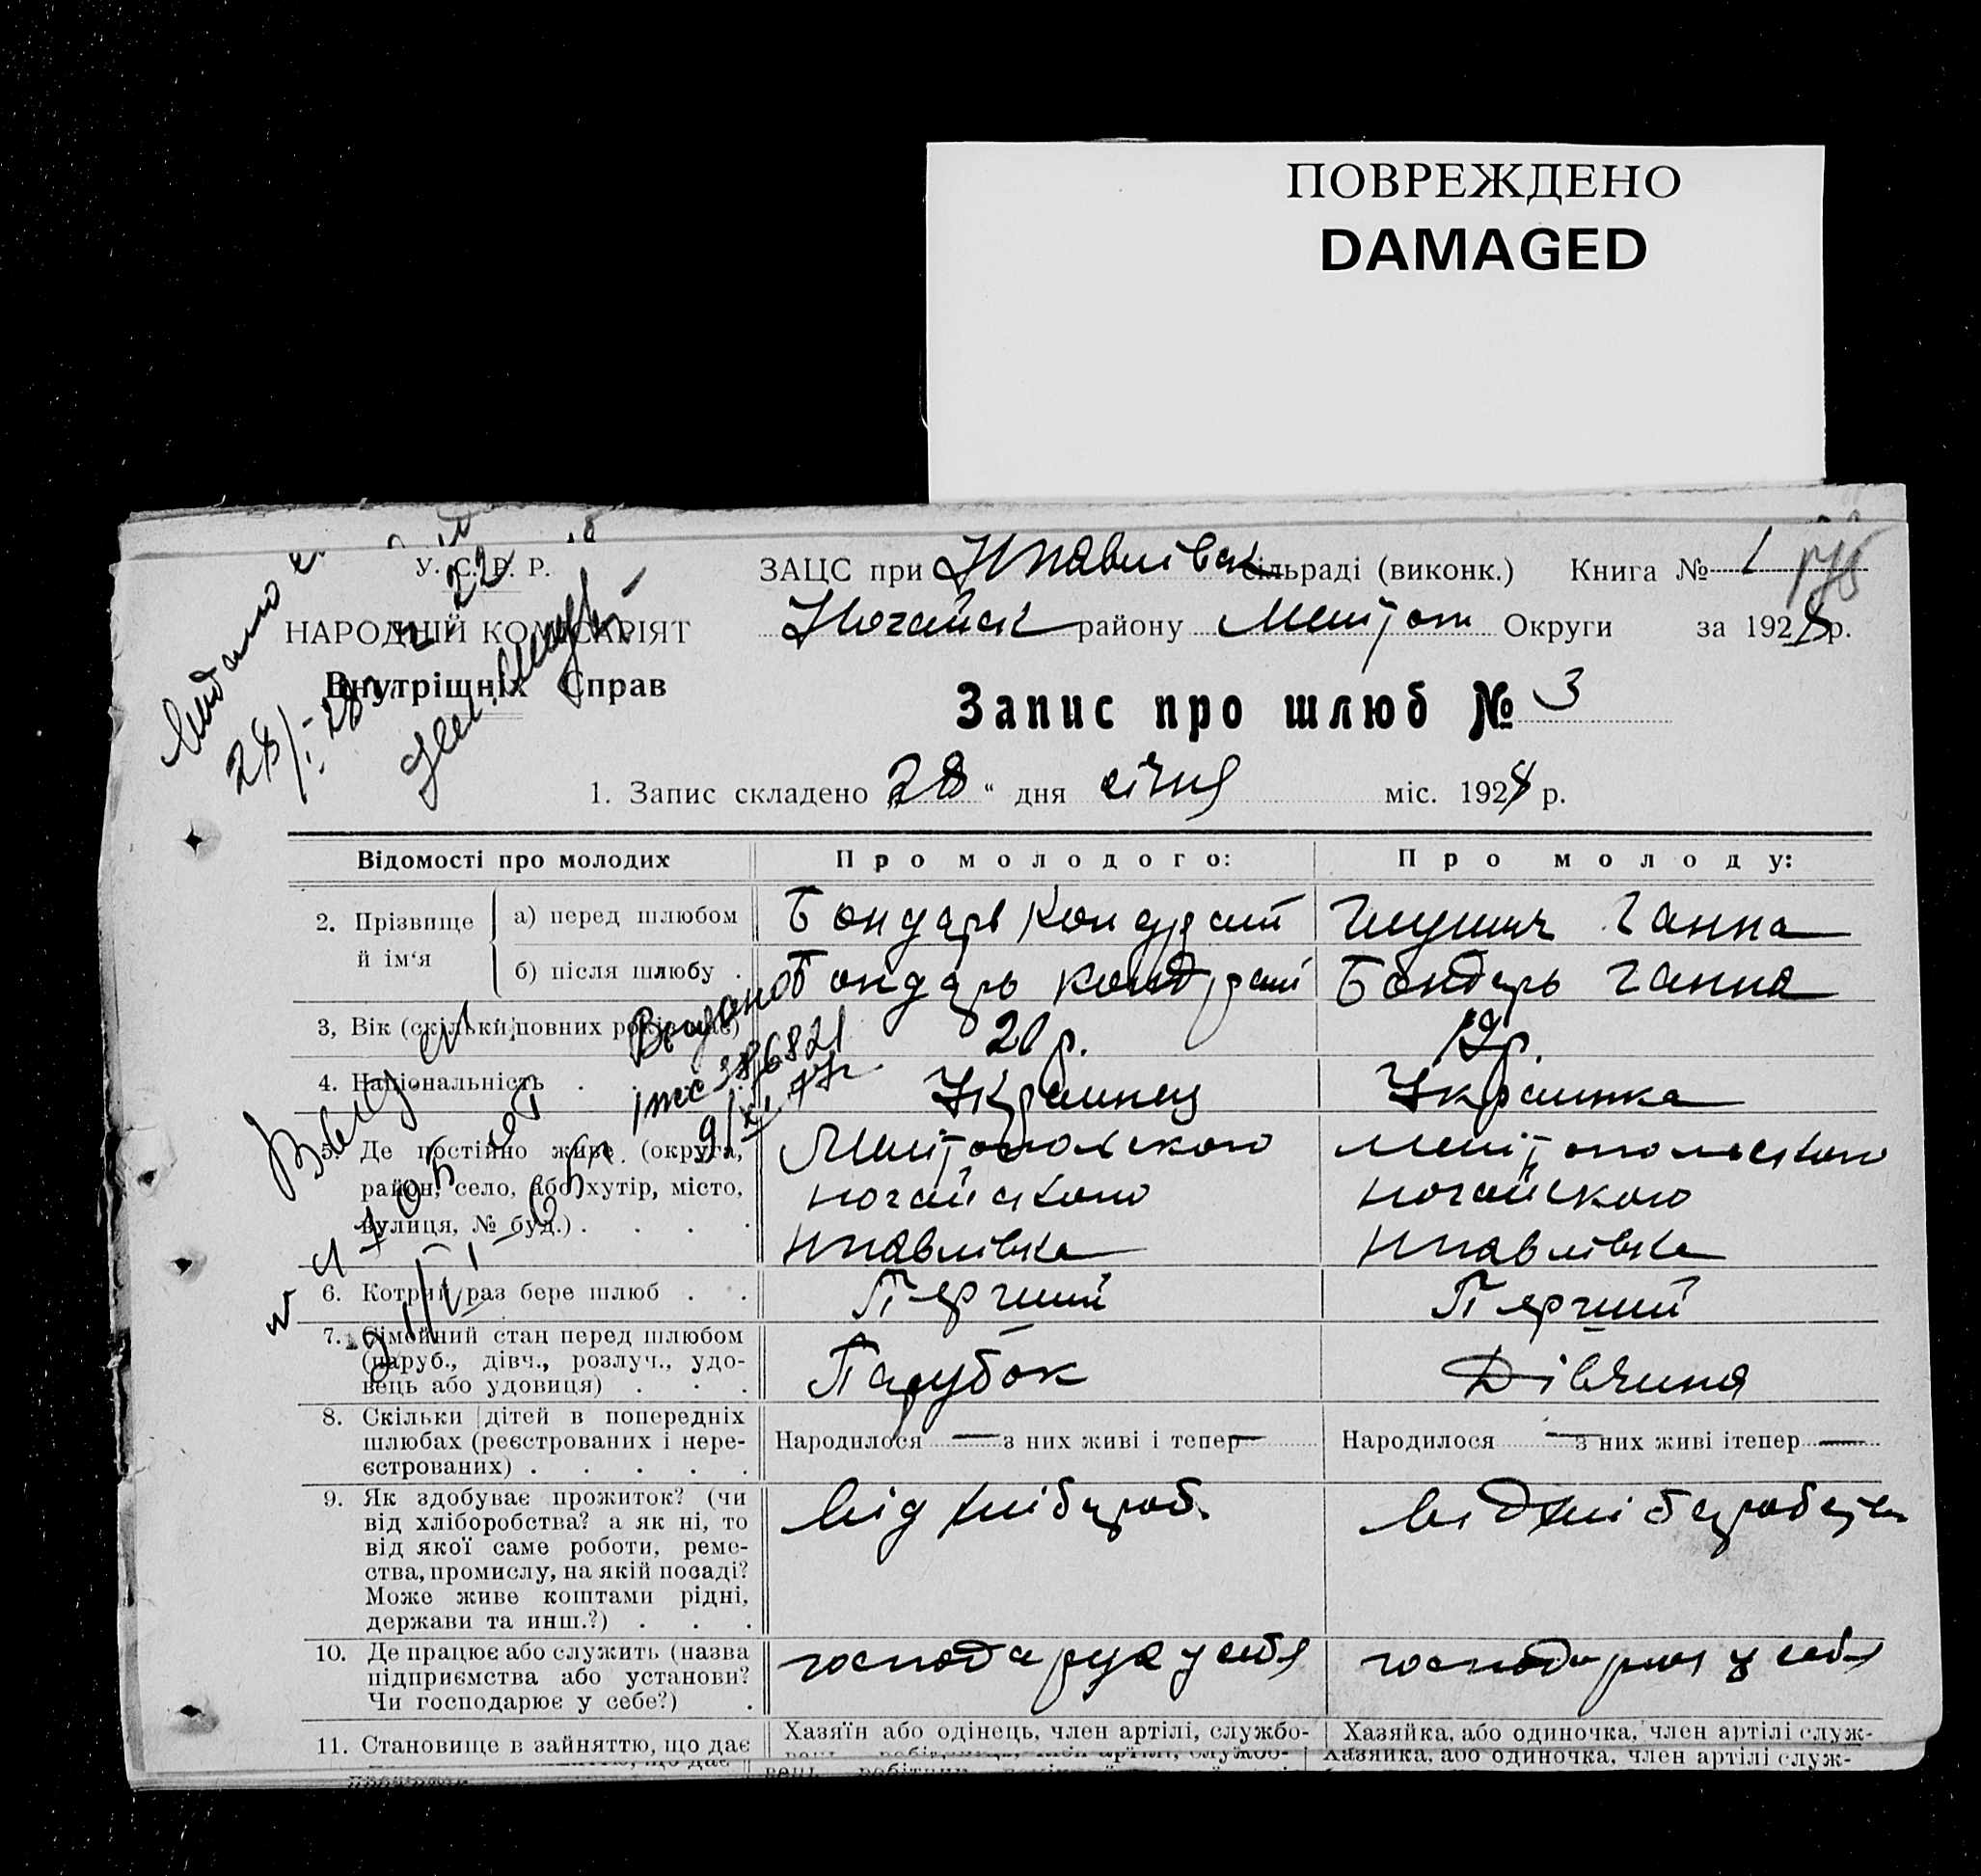 ПОВРЕЖДЕНО
DAMAGED
У. С. Р. Р.
НАРОДНІЙ КОМІСАРІЯТ
Внутрішніх Справ
ЗАЦС при Нпавлівск сільраді (виконк.) Книга № 1
Ногайск району Меліт Округи за 1928 р.
Запис про шлюб № 3
1. Запис складено „28“ дня січня міс. 1928 р.
Відомості про молодих Про молодого: Про молоду:
2. Прізвище й ім‘я а) перед шлюбом Бондарь Кондрат Ганна
б) після шлюбу . Бондарь Кондрат Бондарь Ганна
3, Вік (скільки повних років має) 20 р. р.
4. Національність . Украинец Украинка
5. Де постійно живе (округа, Мелітопольского Мелітопольского
район, село, або хутір, місто, Ногайского Ногайского
вулиця, № буд.) . . . . Нпавлівка Нпавлівка
6. Котрий раз бере шлюб . . Перший Перший
7. Сімейний стан перед шлюбом
(паруб., дівч., розлуч., удо- Парубок Дівчина
вець або удовиця) . . .
8. Скільки дітей в попередніх
шлюбах (реєстрованих і нере- Народилося — з них живі і тепер — Народилося — з них живі ітепер —
єстрованих) . . . . .
9. Як здобуває прожиток? (чи від хлібороб. від
від хліборобства? а як ні, то
від якої саме роботи, реме-
ства, промислу, на якій посаді?
Може живе коштами рідні,
держави та инш.?) . . .
10. Де працює або служить (назва господарує у себя у себя
підприємства або установи?
Чи господарює у себе?) .
11. Становище в зайняттю, що дає Хазяїн або одінець, член артілі, службо- Хазяйка, або одиночка, член артілі служ-
Хазяйка, або одиночка, член артілі служ-
Видано
28/I-28
Выдано
9/XI 77г